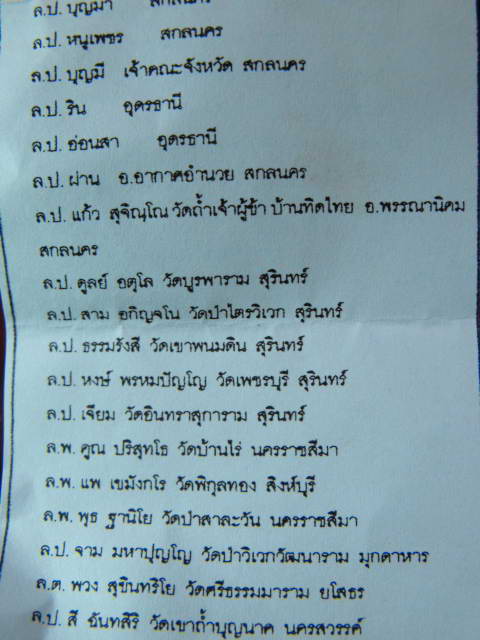 ล.ป. บุญมา สกลนคร
ล.ป. หนูเพชร สกลนคร
ล.ป. บุญมี เจ้าคณะจังหวัด สกลนคร
ล.ป. ริน อุดรธานี
ล.ป. อ่อนสา อุดรธานี
ล.ป. ผ่าน อ.อากาศอำนวย สกลนคร
ล.ป. แก้ว สุจิณฺโณ วัดถ้ำเจ้าผู้ข้า บ้านทิดไทย อ.พรรณานิคม
สกลนคร
ล.ป. ดูลย์ อตุโล วัดบูรพาราม สุรินทร์
ล.ป. สาม อกิญจโน วัดป่าไตรวิเวก สุรินทร์
ล.ป. ธรรมรังสี วัดเขาพนมดิน สุรินทร์
ล.ป. หงษ์ พรหมปัญโญ วัดเพชรบุรี สุรินทร์
ล.ป. เจียม วัดอินทราสุการาม สุรินทร์
ล.พ. คูณ ปริสุทโธ วัดบ้านไร่ นครราชสีมา
ล.พ. แพ เขมังกโร วัดพิกุลทอง สิงห์บุรี
ล.พ. พุธ ฐานิโย วัดป่าสาละวัน นครราชสีมา
ล.ป. จาม มหาปุญโญ วัดป่าวิเวกวัฒนาราม มุกดาหาร
ล.ต. พวง สุขินทริโย วัดศรีธรรมมาราม ยโสธร
ล.ป. สี ฉันทสิริ วัดเขาถ้ำบุญนาค นครสวรรค์